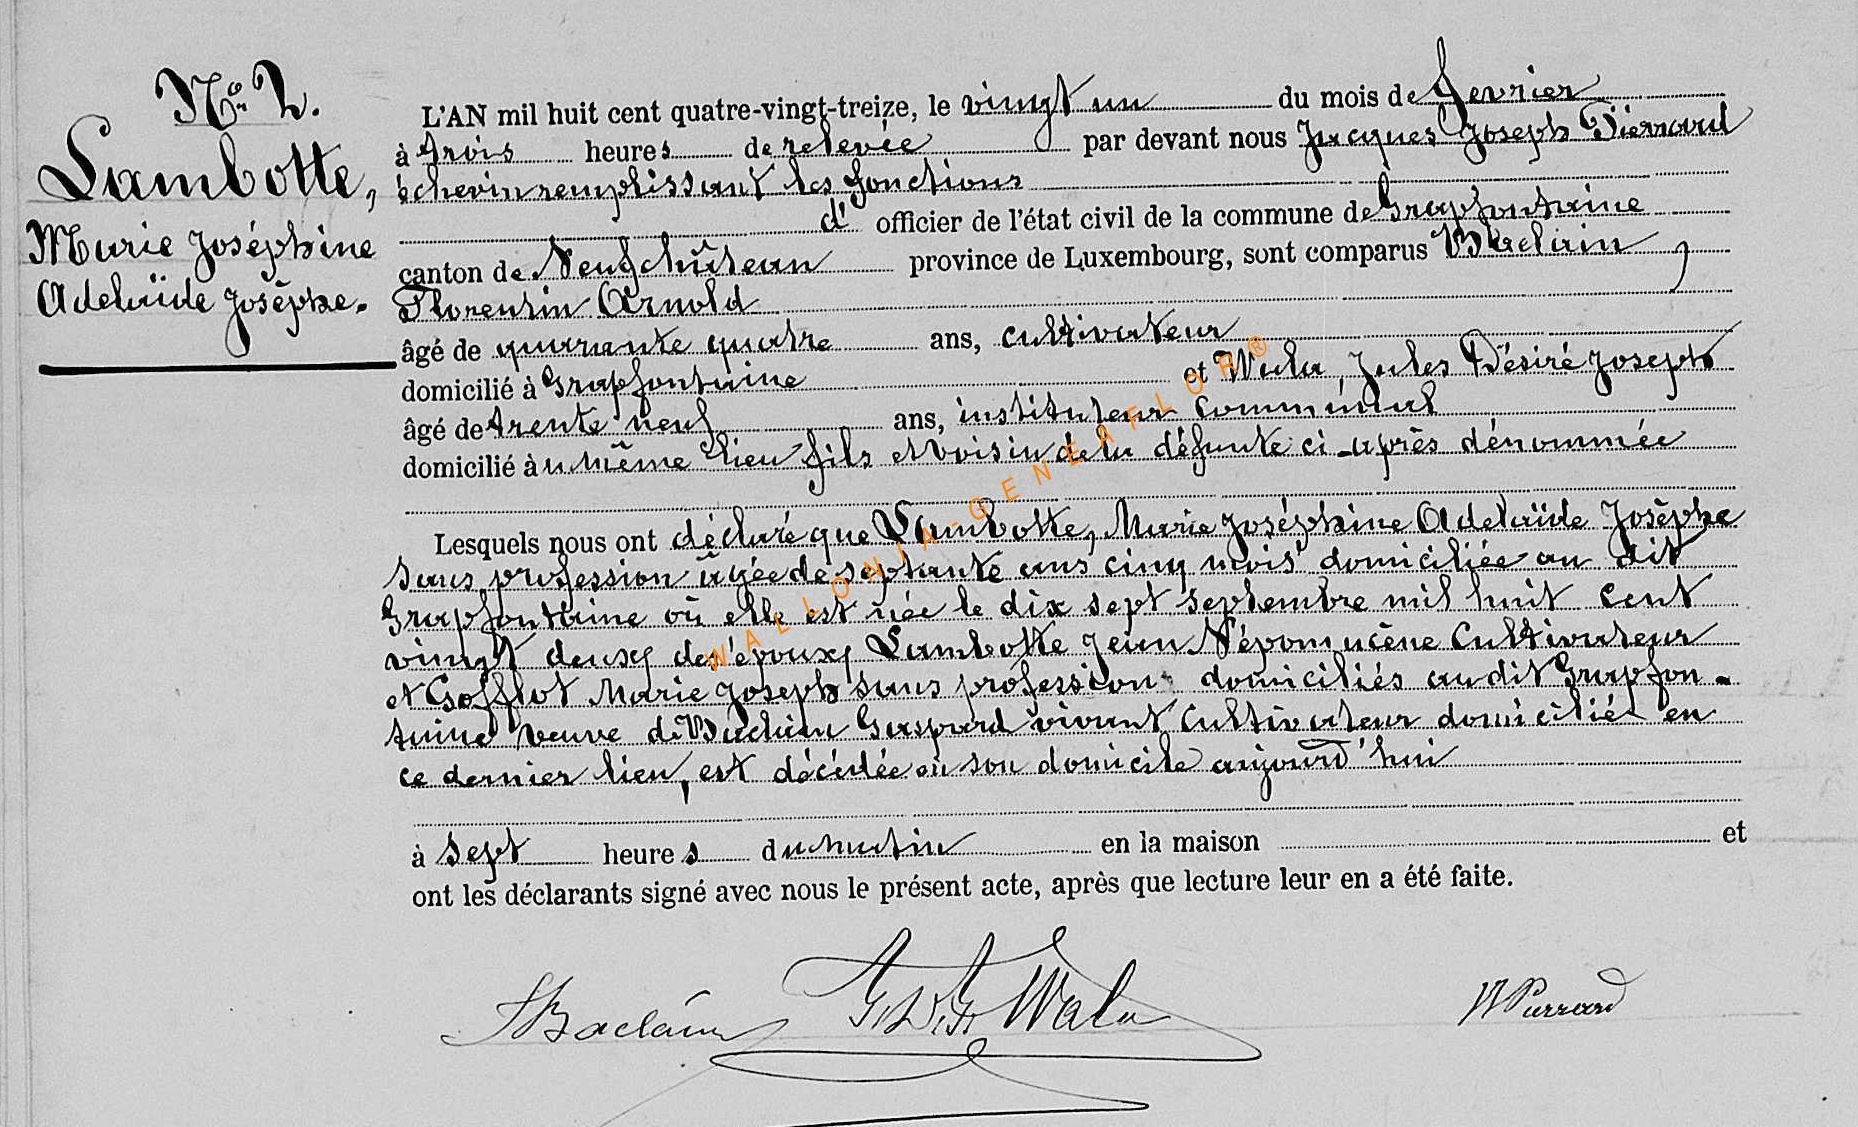 No 2.
Lambotte,
Marie Joséphine
Adelaïde Josèphe.
L'AN mil huit cent quatre-vingt-treize, le vingt un du mois de fevrier
à trois heures de relevée par devant nous Jacques Joseph Pierrard
échevin remplissant les fonctions
d' officier de l'état civil de la commune de Grapfontaine
canton de Neufchâteau province de Luxembourg, sont comparus Baclain,
Florentin Arnold
âgé de quarante quatre ans, cultivateur
domicilié à Grapfontaine et Wala, Jules Désiré Joseph
âgé de trente neuf ans, instituteur communal
domicilié à u même lieu fils et voisin de la défunte ci-après dénommée
Lesquels nous ont déclaré que Lambotte, Marie Joséphine Adelaïde Josèphe
sans profession âgée de septante ans cinq mois domiciliée au dit
Grapfontaine où elle est née le dix sept septembre mil huit cent
vingt deux des époux Lambotte Jean Népomucène Cultivateur
et Gofflot Marie Joseph sans profession domiciliés audit Grapfon-
taine veuve de Baclain Gaspard vivant Cultivateur domicilié en
ce dernier lieu, est décédée en son domicile aujourd'hui
à sept heures du matin en la maison et
ont les déclarants signé avec nous le présent acte, après que lecture leur en a été faite.
Baclain J. D. J. Wala Pierrard
WALLONIA-GENEAFLOR®